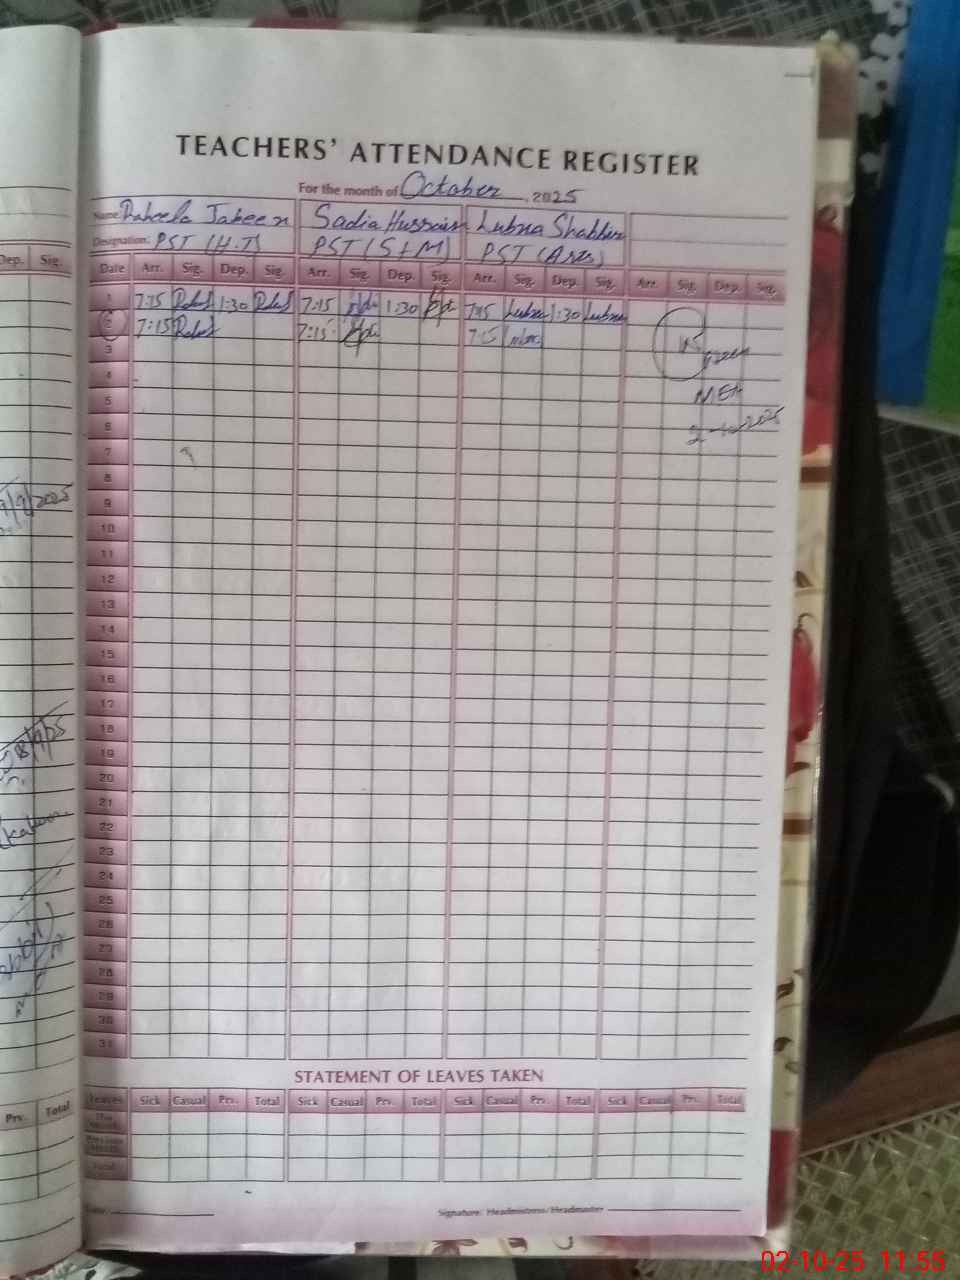 TEACHERS' ATTENDANCE REGISTER
For the month of October, 2025
Name Raheela Jabeen Sadia Hussain Lubna Shabbir
Designation. PST (H.T) PST (S+M) PST (Arts)
Date Arr. Sig. Dep. Sig. Arr. Sig. Dep. Sig. Arr. Sig. Dep. Sig. Arr. Sig. Dep. Sig.
1 7:15 1:30 7:15 1:30 7:15 Lubna 1:30 Lubna
2 7:15 7:15 7:15
3
4
5 MEA
6 2-10-2025
7
8
9
10
11
12
13
14
15
16
17
18
19
20
21
22
23
24
25
26
27
28
29
30
31
STATEMENT OF LEAVES TAKEN
Leaves Sick Casual Prv. Total Sick Casual Prv. Total Sick Casual Prv. Total Sick Casual Prv. Total
Total
Signature: Headmistress/Headmaster
Dep. Sig.
9/9/2025
Prv. Total
02-10-25 11:55